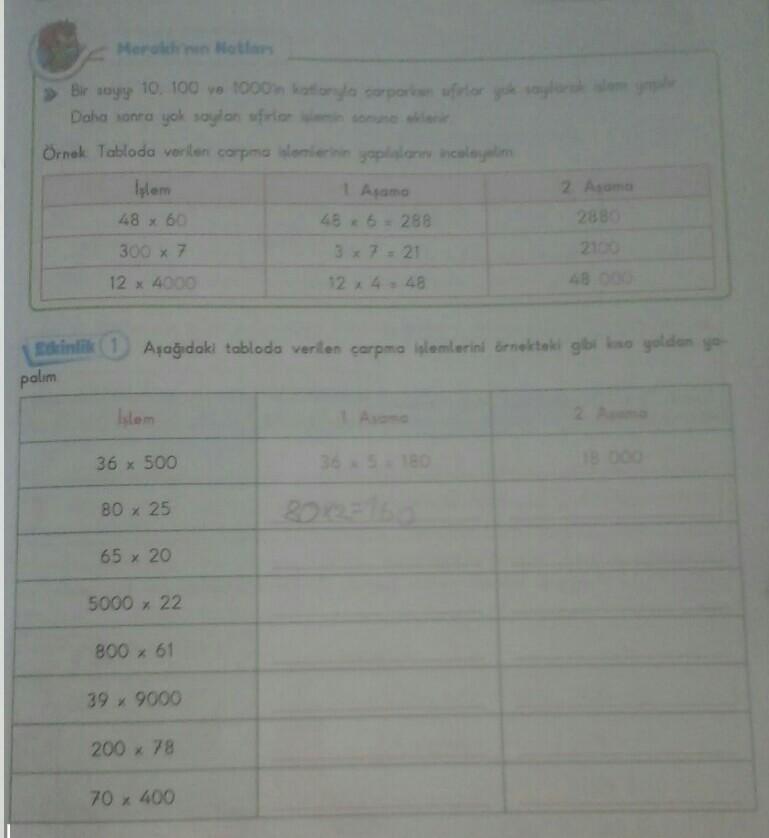 Meraklı'nın Notları
Bir sayıyı 10, 100 ve 1000'in katlarıyla çarparken sıfırlar yok sayılarak işlem yapılır.
Daha sonra yok sayılan sıfırlar işlemin sonuna eklenir.
Örnek: Tabloda verilen çarpma işlemlerinin yapılışlarını inceleyelim.
İşlem 1. Aşama 2. Aşama
48 x 60 48 x 6 = 288 2880
300 x 7 3 x 7 = 21 2100
12 x 4000 12 x 4 = 48 48 000
Etkinlik 1 Aşağıdaki tabloda verilen çarpma işlemlerini örnekteki gibi kısa yoldan ya-
palım.
İşlem 1. Aşama 2. Aşama
36 x 500 36 x 5 = 180 18 000
80 x 25 80x2=160
65 x 20
5000 x 22
800 x 61
39 x 9000
200 x 78
70 x 400